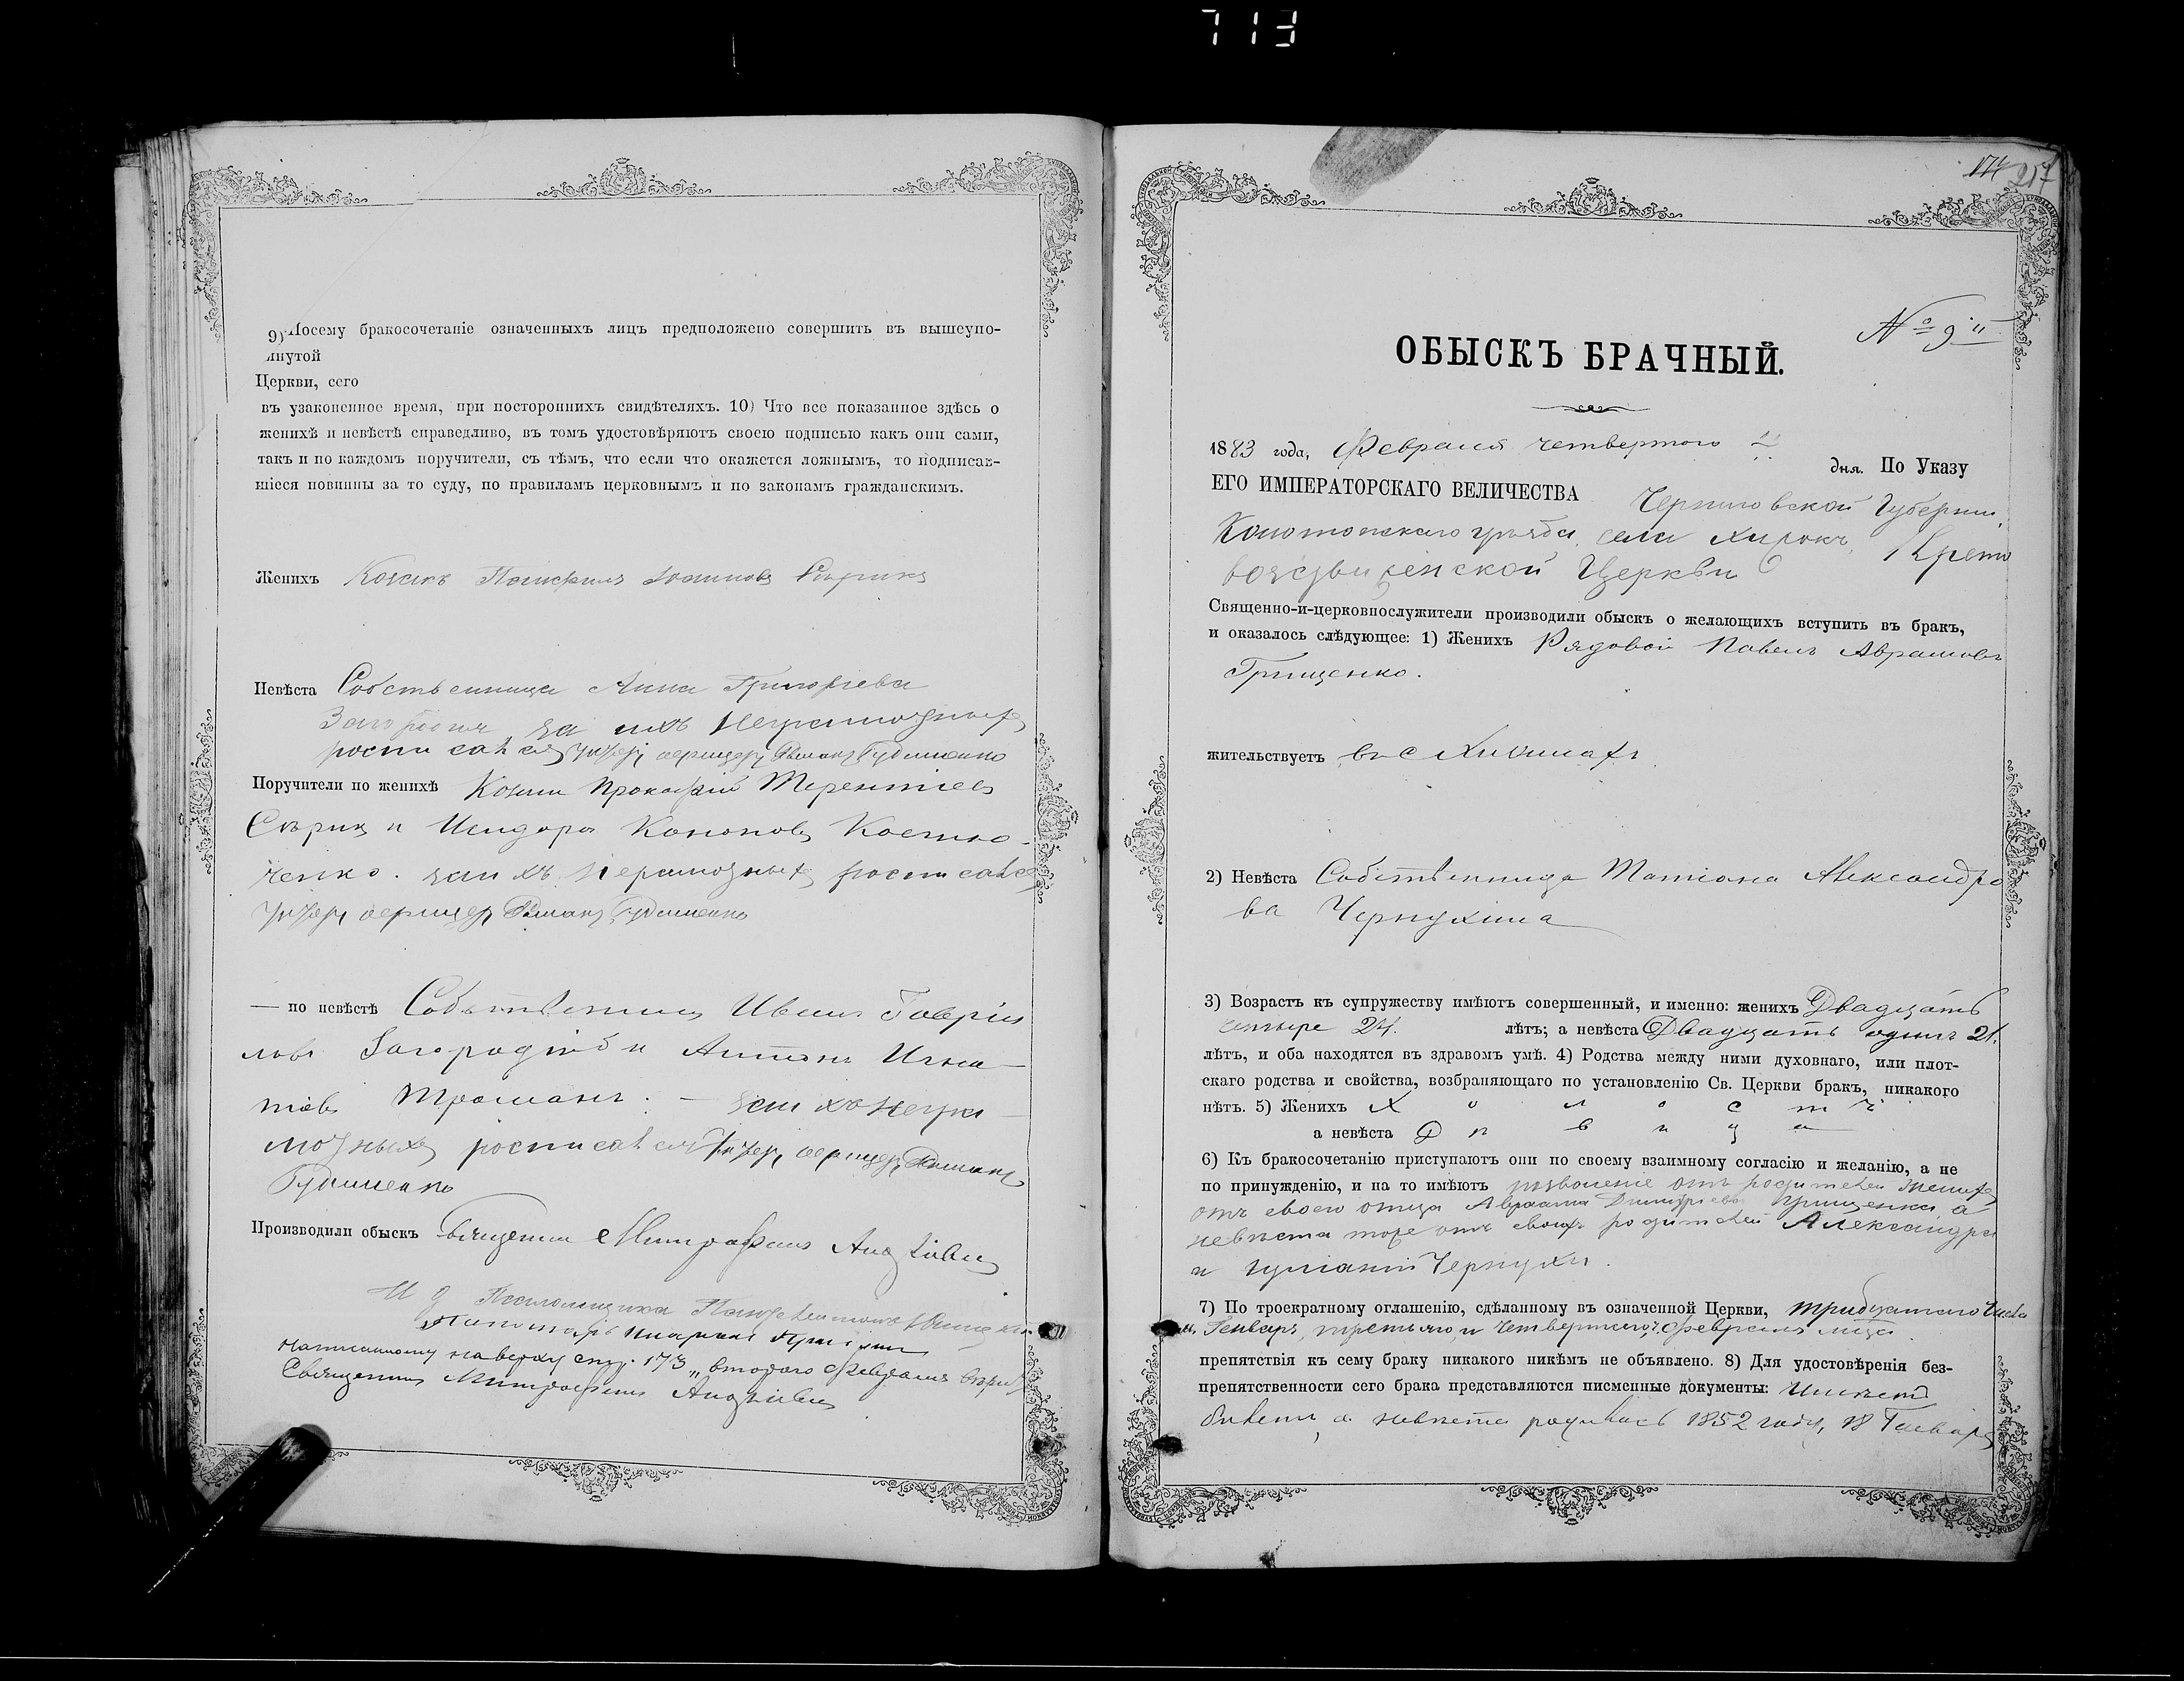 713
9) Посему бракосочетаніе означенныхъ лицъ предположено совершить въ вышеупо-
мянутой
Церкви, сего
въ узаконенное время, при постороннихъ свидѣтеляхъ. 10) Что все показанное здѣсь о
женихѣ и невѣстѣ справедливо, въ томъ удостовѣряютъ своею подписью какъ они сами,
такъ и по каждомъ поручители, съ тѣмъ, что если что окажется ложнымъ, то подписав-
шіеся повинны за то суду, по правиламъ церковнымъ и по законамъ гражданскимъ.
Женихъ Козакъ
Невѣста Собственница Анна Григорьева
за ихъ неграмотныхъ
росписался унтер офицер Гудименко
Поручители по женихѣ Козаки Прокофій Терентіев
и Исидоръ Кононовъ Костю-
ченко. за ихъ неграмотныхъ росписался
унтер офицер Гудименко
— по невѣстѣ Собственники Иванъ Гаврі
ловъ Загородній и Антонъ Игна-
тіевъ — за ихъ негра-
мотныхъ росписался унтер офицер
Гудименко
Производили обыскъ Священникъ Митрофанъ
И д Псаломщика
Пономарь
написанному на верху стр. 173 „второго Февраля вѣрить
Священникъ Митрофанъ
174 217
№ 9й
ОБЫСКЪ БРАЧНЫЙ.
1883 года, Февраля четвертого дня. По Указу
ЕГО ИМПЕРАТОРСКАГО ВЕЛИЧЕСТВА Черниговской Губерніи
Конотопскаго уѣзда села Кресто
воздвиженской Церкви
Священно-и-церковнослужители производили обыскъ о желающихъ вступить въ бракъ,
и оказалось слѣдующее: 1) Женихъ Рядовой Павелъ Аврамовъ
Грищенко.
жительствуетъ въ с
2) Невѣста Собственница Татіана Александро
ва Чернухина
3) Возрастъ къ супружеству имѣютъ совершенный, и именно: женихъ Двадцать
четыре 24. лѣтъ; а невѣста Двадцать одинъ 21.
лѣтъ, и оба находятся въ здравомъ умѣ. 4) Родства между ними духовнаго, или плот-
скаго родства и свойства, возбраняющаго по установленію Св. Церкви бракъ, никакого
нѣтъ. 5) Женихъ Х о л о с т ъ
а невѣста Д ѣ в и ц а
6) Къ бракосочетанію приступаютъ они по своему взаимному согласію и желанію, а не
по принужденію, и на то имѣютъ позволеніе отъ родителей женихъ
отъ своего отца Авраама Димитріева Грищенка а
невѣста тоже отъ своихъ родителей Александра
и Чернухи.
7) По троекратному оглашенію, сдѣланному въ означенной Церкви, тридцатого числа
Генваря, третьяго и четвертого Февраля мѣца
препятствія къ сему браку никакого никѣмъ не объявлено. 8) Для удостовѣренія без-
препятственности сего брака представляются писменные документы:
билетъ, а невѣста родилась 1852 году, 18 Генваря